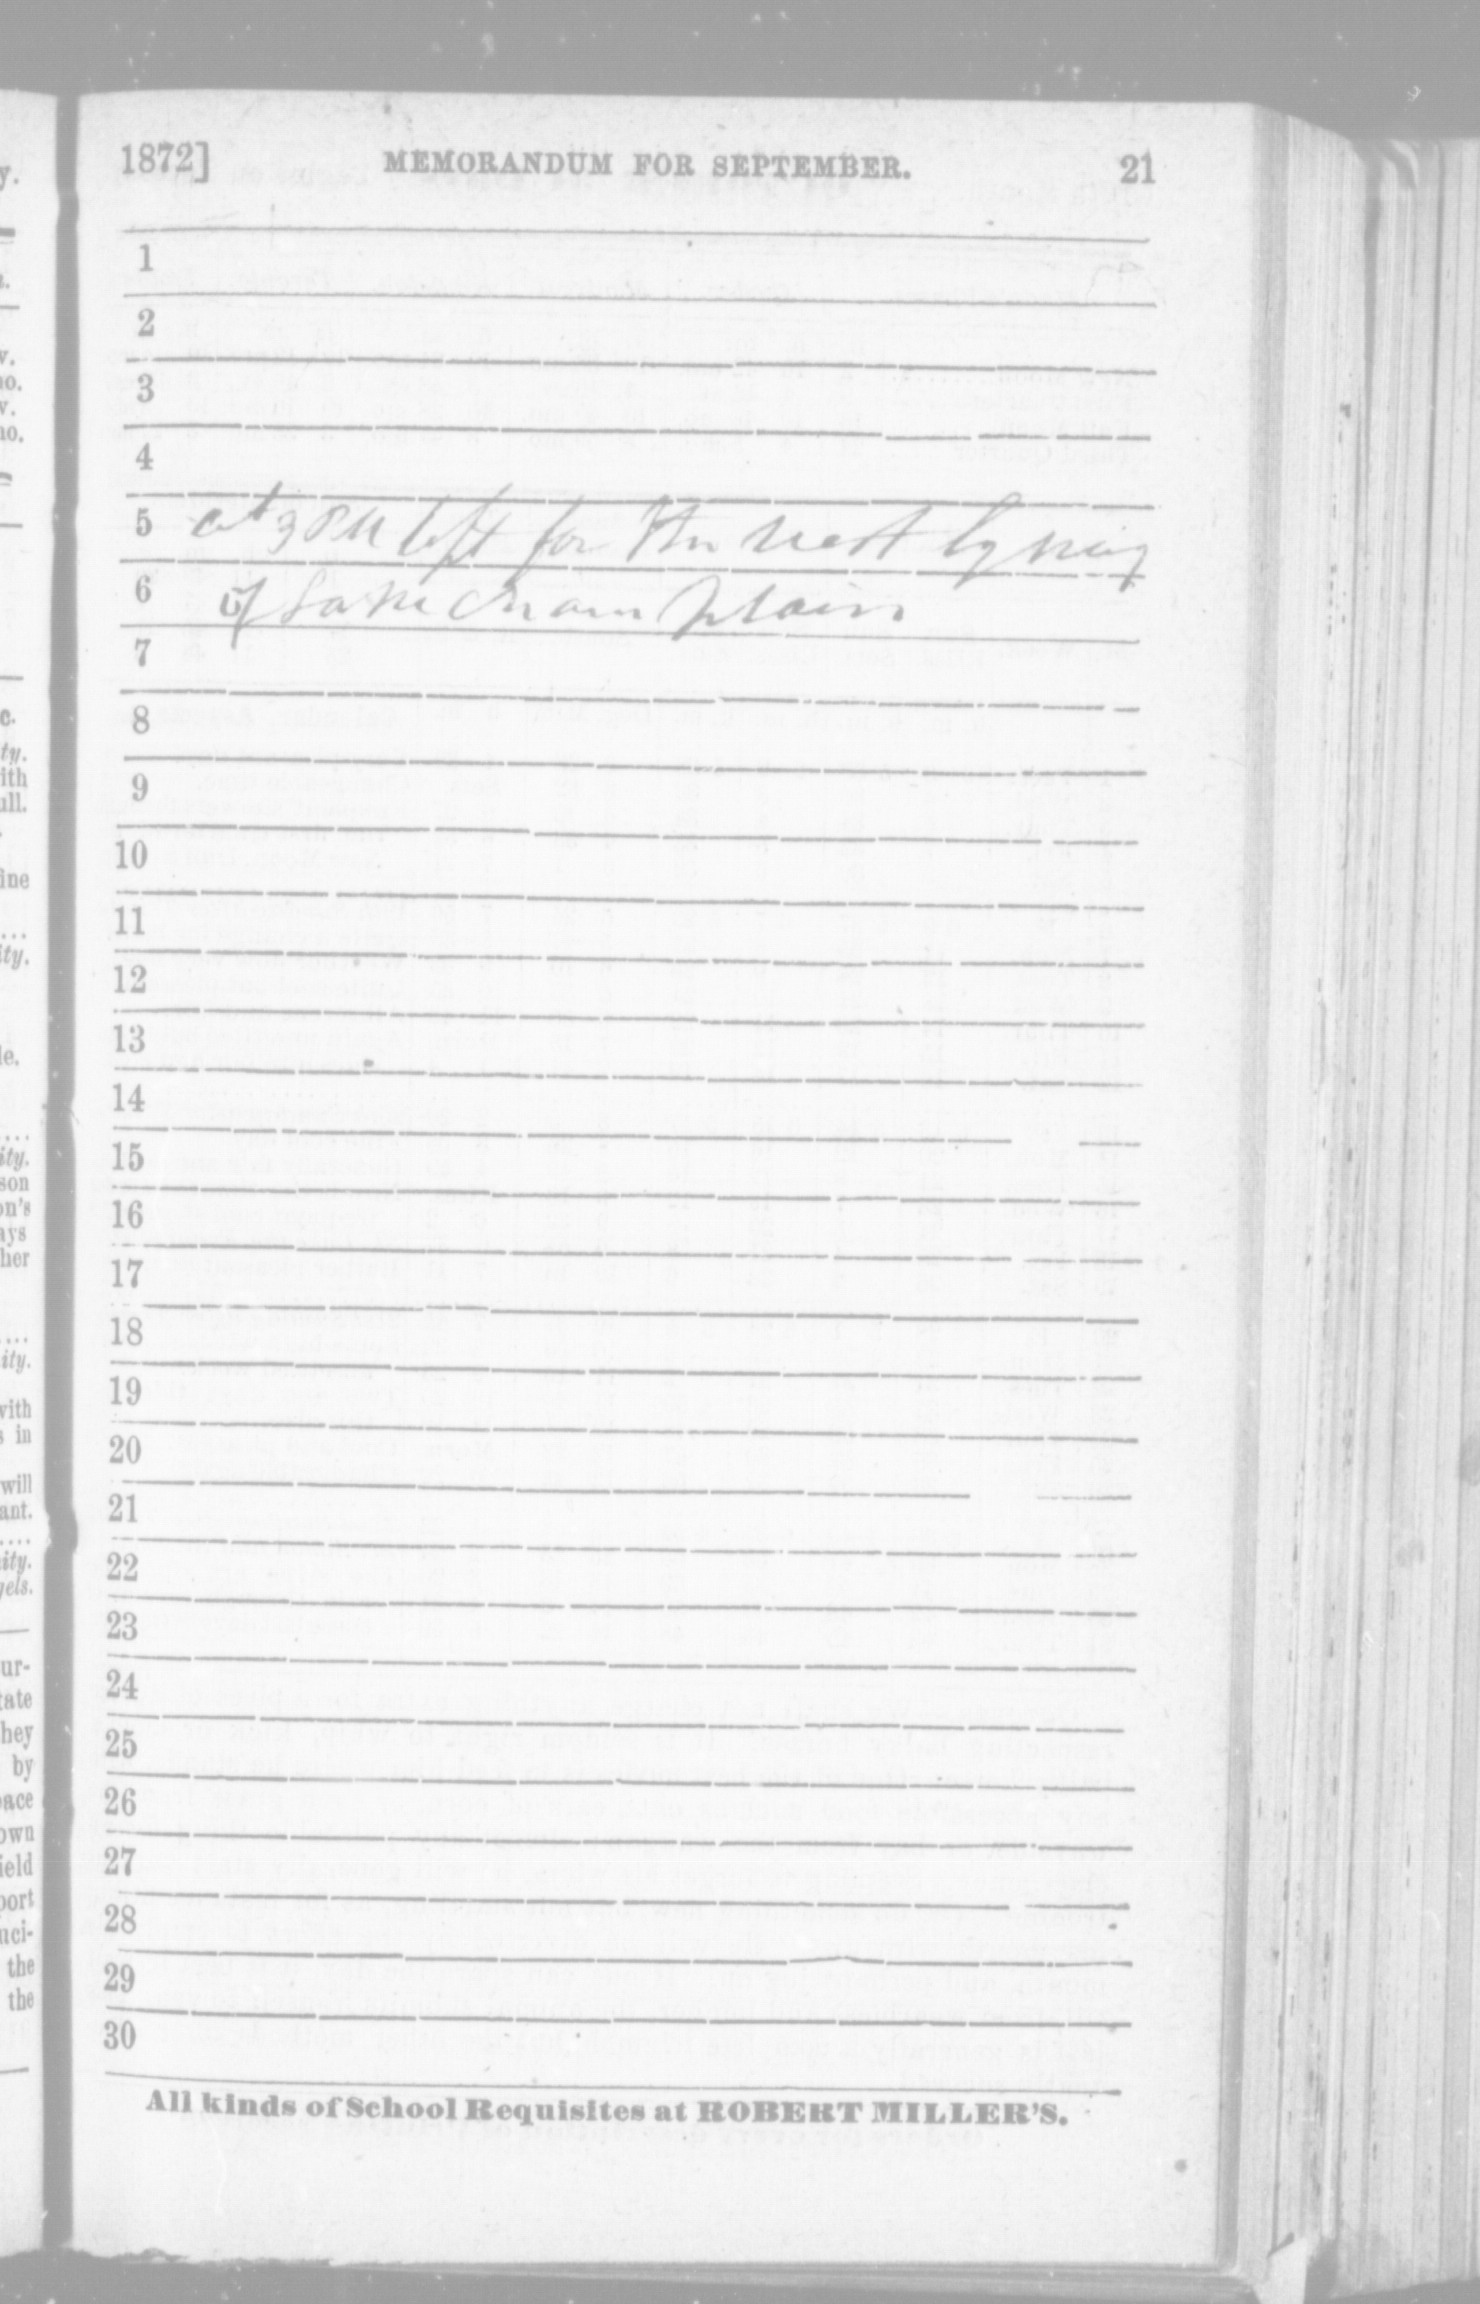 1872] MEMORANDUM FOR SEPTEMBER. 21
1
2
3
4
5 at 3 PM left for the west by way
6 of Lake Champlain
7
8
9
10
11
12
13
14
15
16
17
18
19
20
21
22
23
24
25
26
27
28
29
30
All kinds of School Requisites at ROBERT MILLER'S.